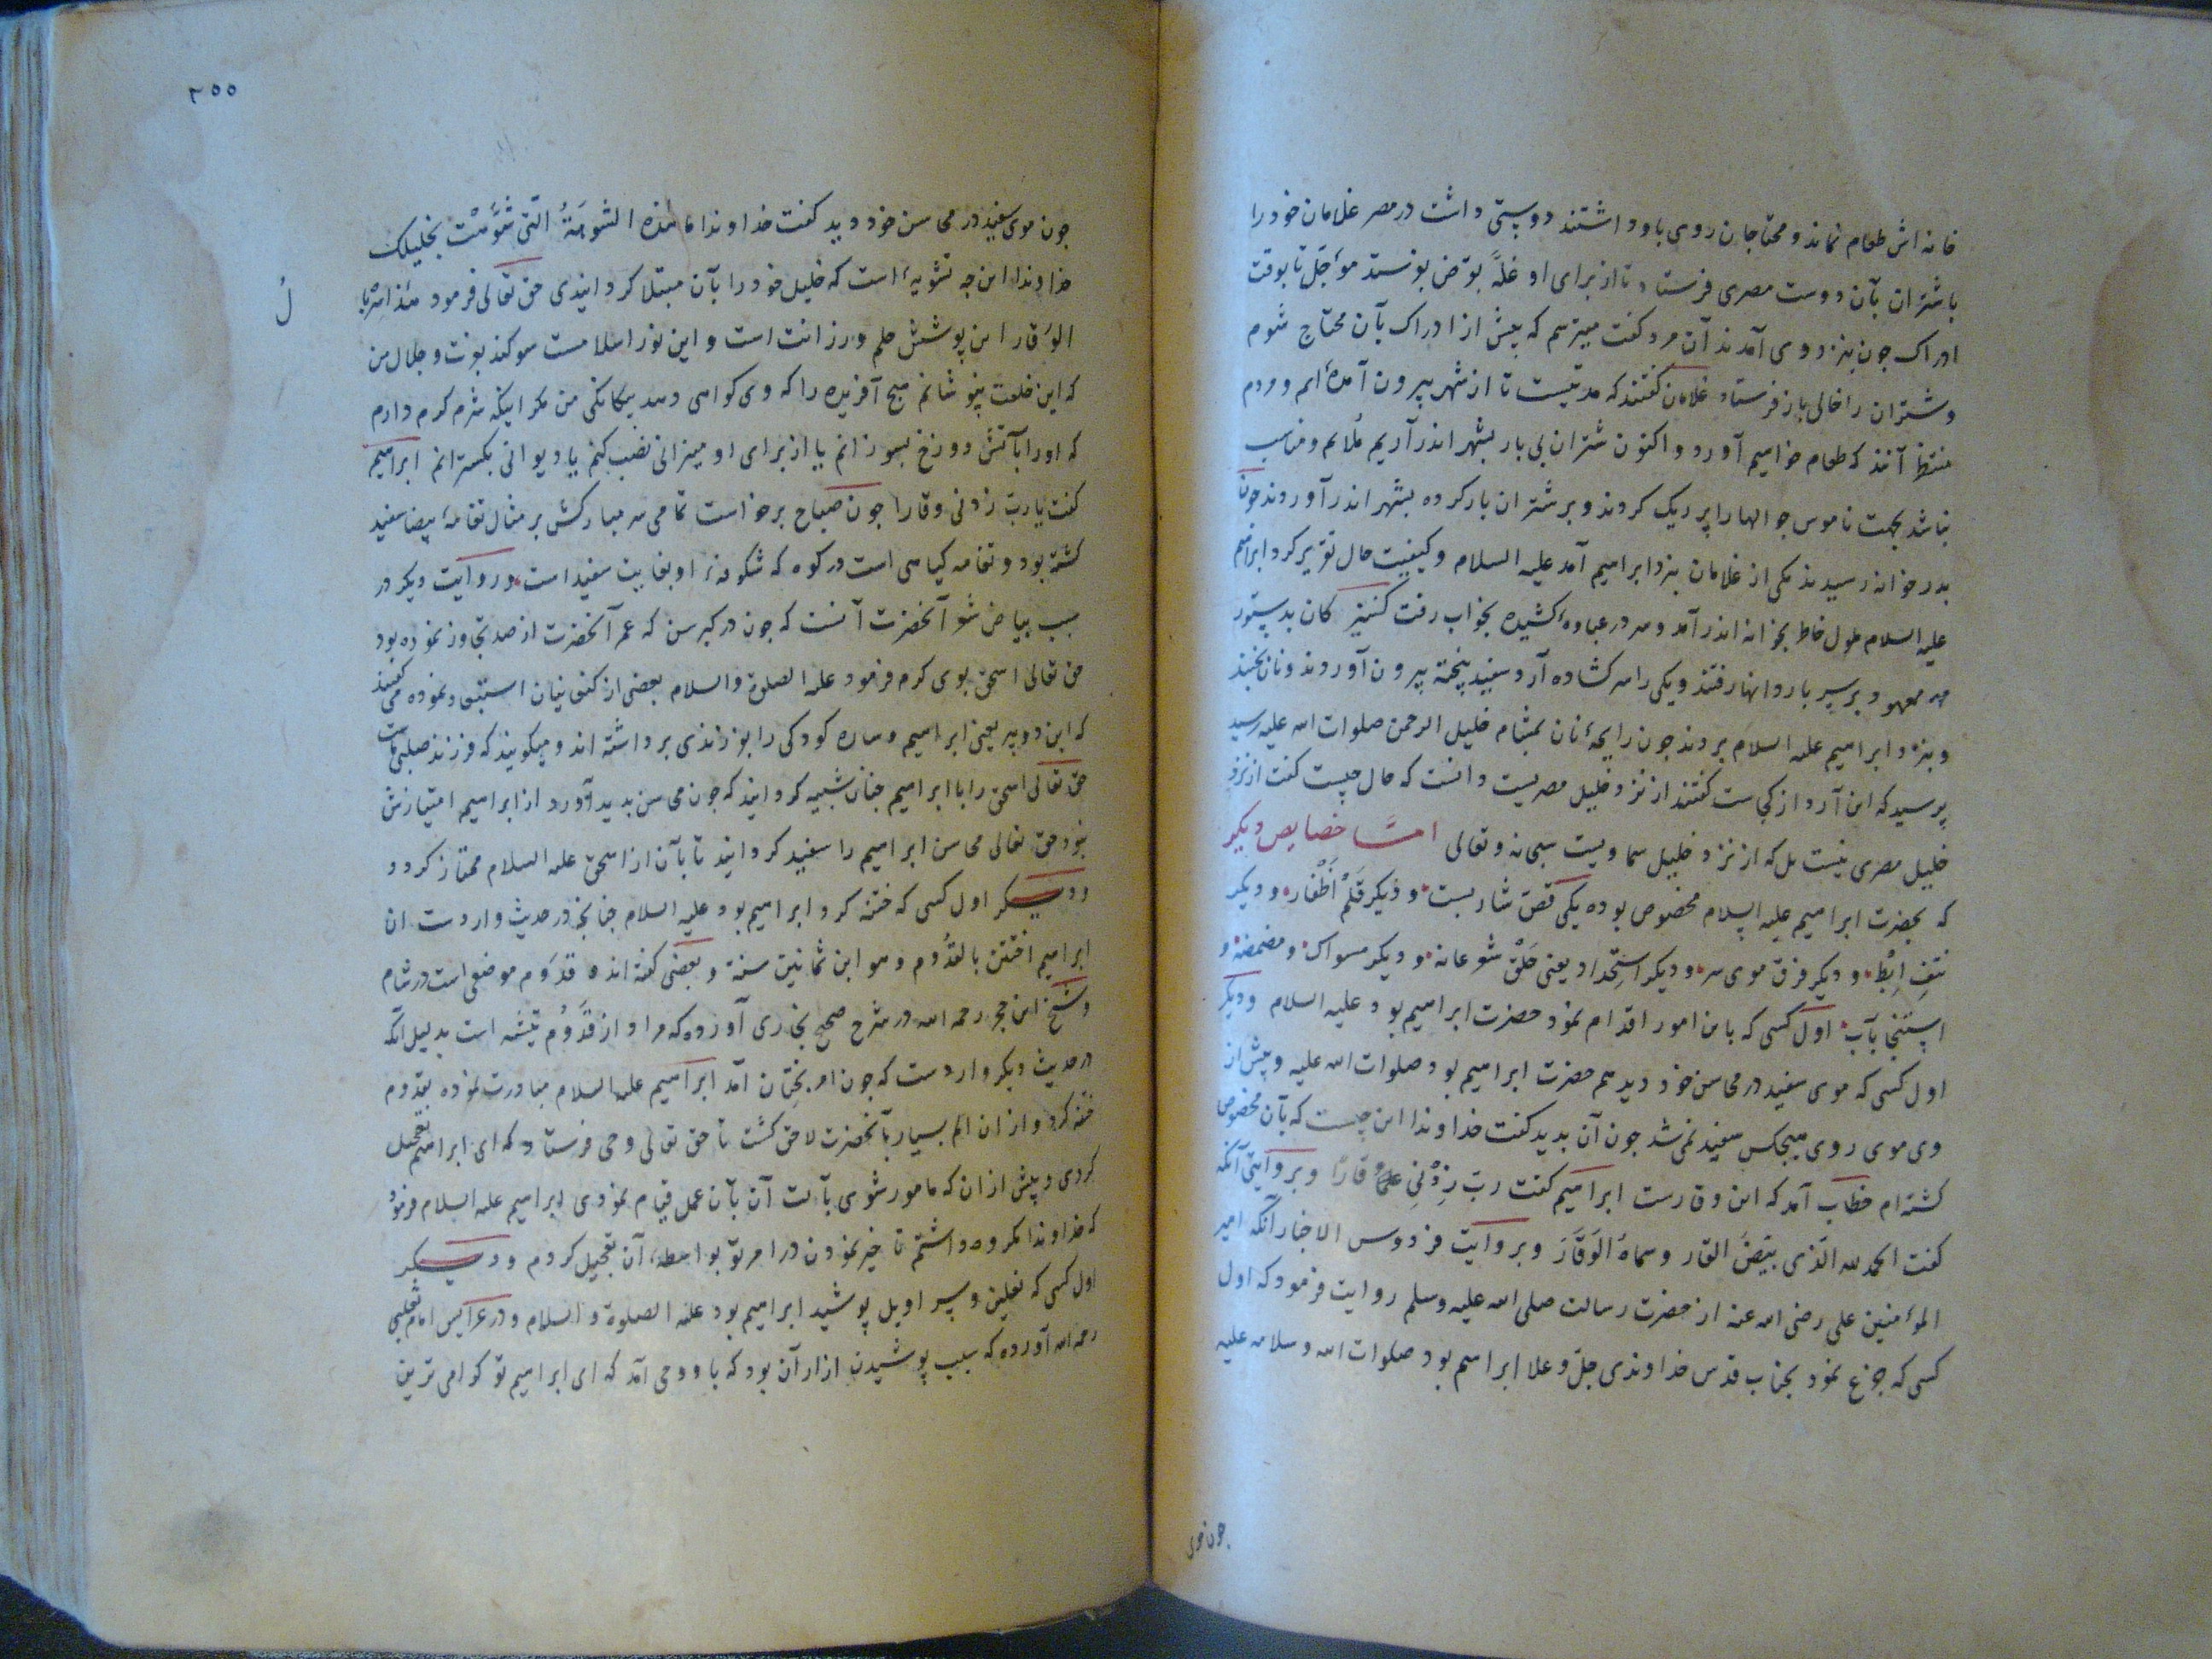 خانه اش طعام نماند و محتاجان روی باو داشتند دوستی داشت در مصر غلامان خود را
با شتران بآن دوست مصری فرستاد تا از برای او غلّه بقرض بفرستد مؤجّل تا بوقت
ادراک چون بنزد وی آمدند آن مرد گفت میترسم که پیش از ادراک بآن محتاج شوم
و شتران را خالی باز فرستاد غلامان گفتند که مدتیست تا از شهر بیرون آمده‌ایم و مردم
منتظر آنند که طعام خواهیم آورد و اکنون شتران بی بار بشهر اندر آریم ملایم و مناسب
نباشد بجهت ناموس جوالها را پر ریک کردند و بر شتران بار کرده بشهر اندر آوردند چون
بدر خانه رسیدند یکی از غلامان بنزد ابراهیم آمد علیه السلام و کیفیت حال تقریر کرد ابراهیم
علیه السلام ملول خاطر بخانه اندر آمد و سر در عبا کشیده بخواب رفت کنیزکان بدستور
معهود بر سر باردانها رفتند و یکی را سر کشاده آرد سفید پخته بیرون آوردند و نان پختند
و بنزد ابراهیم علیه السلام بردند چون رایحهٔ نان بمشام خلیل الرحمن صلوات الله علیه رسید
پرسید که این آرد از کجاست گفتند از نزد خلیل مصریست دانست که حال چیست گفت از نزد
خلیل مصری نیست بل که از نزد خلیل سماویست سبحانه و تعالی امّا خصایص دیکر
که بحضرت ابراهیم علیه السلام مخصوص بوده یکی قصّ شاربست و دیکر قَلَم اَظْفار و دیکر
نتفِ اِبْط و دیکر فرق موی سر و دیکر استحداد یعنی حَلْق شعر عانه و دیکر مسواک و مضمضه و
استنجا بآب اول کسی که باین امور اقدام نمود حضرت ابراهیم بود علیه السلام و دیکر
اول کسی که موی سفید در محاسن خود دید هم حضرت ابراهیم بود صلوات الله علیه و پیش از
وی موی روی هیچکس سفید نمی شد چون آن بدید گفت خداوندا این چیست که بآن مخصوص
گشته ام خطاب آمد که این وقارست ابراهیم گفت ربّ زِدْنی وقارًا و بروایتی آنکه
گفت الحمد لله الّذی بیّضَ القار و سماهُ الوَقار و بروایت فردوس الاخبار آنکه امیر
المؤمنین علی رضی الله عنه از حضرت رسالت صلی الله علیه وسلم روایت فرمود که اول
کسی که جزع نمود بجناب قدس خداوندی جلّ و علا ابراهیم بود صلوات الله و سلامه علیه
چون موی
۲۵۵
چون موی سفید در محاسن خود دید گفت خداوندا ما هذه الشّوهَةُ الّتی شَوَّهْتَ بخلیلک
خداوندا این چه تشویهٔ است که خلیل خود را بآن مبتلا کردانیدی حق تعالی فرمود هذا سربال
الوقار این پوشش حلم و رزانت است و این نور اسلامست سوکند بعزت و جلال من
که این خلعت نپوشانم هیچ آفریده را که وی کواهی دهد بیکانکی من مکر اینکه شرم کرم دارم
که او را بآتش دوزخ بسوزانم یا از برای او میزانی نصب کنم یا دیوانی بکسترانم ابراهیم
گفت یا رب زدنی وقارا چون صباح برخاست تمامی سر مبارکش بر مثال ثغامهٔ بیضا سفید
گشته بود و ثغامه گیاهی است در کوه که شکوفهٔ او بغایت سفید است و روایت دیکر در
سبب بیاض شعر آنحضرت آنست که چون در کبر سن که عمر آنحضرت از صد تجاوز نموده بود
حق تعالی اسحق بوی کرم فرمود علیه الصلوة والسلام بعضی از کنعانیان استبعاد نموده می گفتند
که این دو پیر یعنی ابراهیم و ساره کودکی را بفرزندی برداشته اند و میکویند که فرزند صلبی ماست
حق تعالی اسحق را با ابراهیم چنان شبیه کردانید که چون محاسن پدید آورد از ابراهیم امتیازش
نبود حق تعالی محاسن ابراهیم را سفید کردانید تا بآن از اسحق علیه السلام ممتاز کردد
و دیکر اول کسی که ختنه کرد ابراهیم بود علیه السلام چنانچه در حدیث واردست ان
ابراهیم اختتن بالقدُوم و هو ابن ثمانین سنة و بعضی گفته اند قدوم موضعی است در شام
و شیخ ابن حجر رحمه الله در شرح صحیح بخاری آورده که مراد از قدوم تیشه است بدلیل آنکه
در حدیث دیکر واردست که چون امر بختان آمد ابراهیم علیه السلام مبادرت نموده بقدوم
ختنه کرد و از ان الم بسیار بآنحضرت لاحق گشت تا حق تعالی وحی فرستاد که ای ابراهیم تعجیل
کردی و پیش از ان که مامور شوی بآلت آن بآن عمل قیام نمودی ابراهیم علیه السلام فرمود
که خداوندا مکروه داشتم تاخیر نمودن در امر تو بواسطهٔ آن تعجیل کردم و دیکر
اول کسی که نعلین و سراویل پوشید ابراهیم بود علیه الصلوة والسلام و در عرایس امام ثعلبی
رحمه الله آورده که سبب پوشیدن ازار آن بود که باو وحی آمد که ای ابراهیم تو کرامی ترین